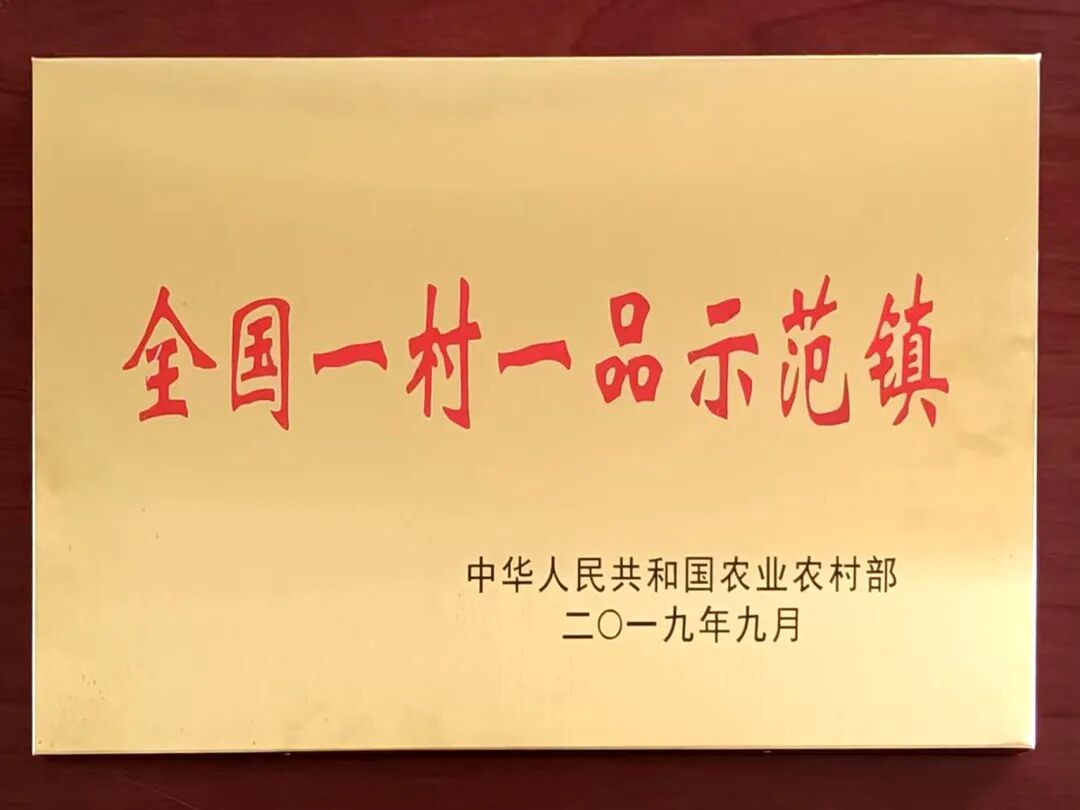 全国一村一品示范镇
中华人民共和国农业农村部
二〇一九年九月